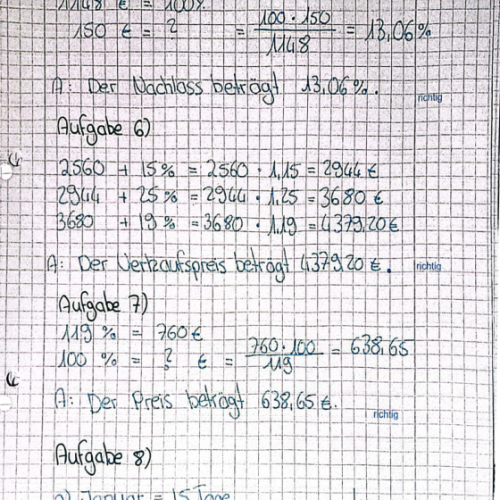 1148 € = 100%
150 € = ? = 100 · 150 / 1148 = 13,06%
A: Der Nachlass beträgt 13,06%.
richtig
Aufgabe 6)
2560 + 15 % = 2560 · 1,15 = 2944 €
2944 + 25 % = 2944 · 1,25 = 3680 €
3680 + 19 % = 3680 · 1,19 = 4379,20 €
A: Der Verkaufspreis beträgt 4379,20 €.
richtig
Aufgabe 7)
119 % = 760 €
100 % = ? € = 760 · 100 / 119 = 638,65
A: Der Preis beträgt 638,65 €.
richtig
Aufgabe 8)
a) Januar = 15 Tage